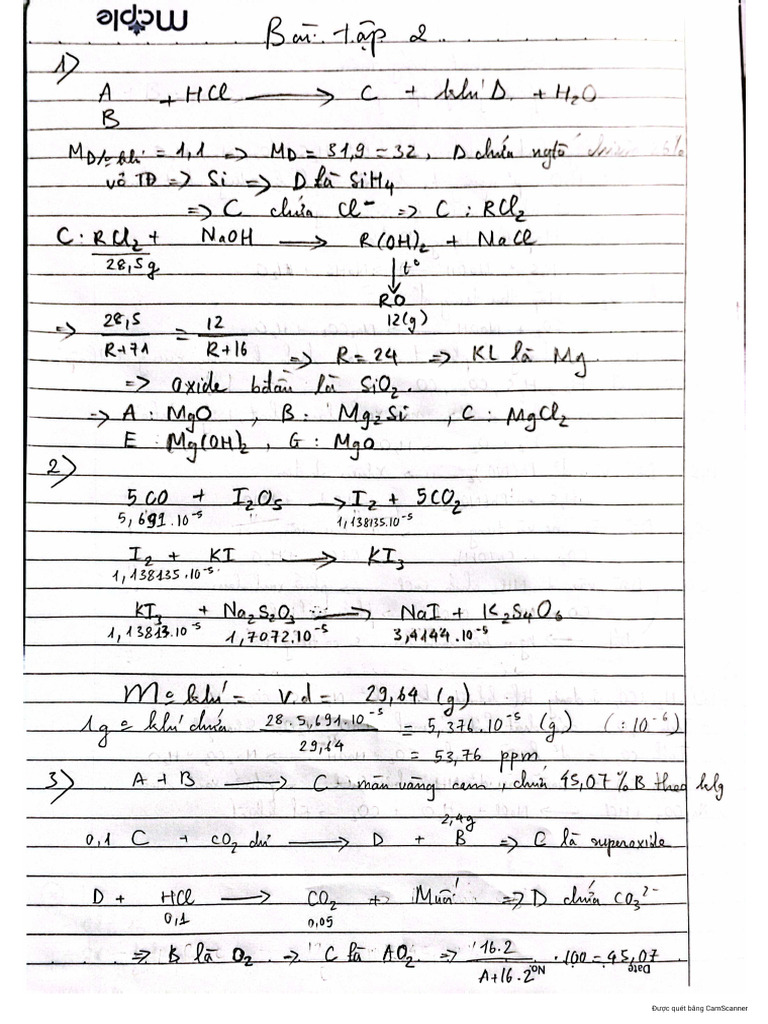 Maple
Bài tập 2
1)
A
B + HCl ⟶ C + khí D + H₂O
M D/o khí = 1,1 => M_D = 31,9 = 32, D chứa ngtố
vỏ TĐ => Si => D là SiH₄
=> C chứa Cl⁻ => C : RCl₂
C : RCl₂ + NaOH ⟶ R(OH)₂ + NaCl
28,5g ↓ t°
RO
12(g)
=> 28,5/(R+71) = 12/(R+16) => R = 24 => KL là Mg.
=> oxide bđầu là SiO₂.
-> A : MgO , B : Mg₂Si , C : MgCl₂
E : Mg(OH)₂ , G : MgO
2)
5CO + I₂O₅ ⟶ I₂ + 5CO₂
5,691.10⁻⁵ 1,138135.10⁻⁵
I₂ + KI ⟶ KI₃
1,138135.10⁻⁵
KI₃ + Na₂S₂O₃ ⟶ NaI + K₂S₄O₆
1,13813.10⁻⁵ 1,7072.10⁻⁵ 3,4144.10⁻⁵
m o khí = v.d = 29,64 (g)
1g o khí chứa (28. 5,691.10⁻⁵)/29,64 = 5,376.10⁻⁵ (g) (:10⁻⁶)
= 53,76 ppm
3) A + B ⟶ C màn vàng cam, chứa 45,07 % B theo klg
2,4g
0,1 C + CO₂ dư ⟶ D + B => C là superoxide
D + HCl ⟶ CO₂ + Muối => D chứa CO₃²⁻
0,1 0,05
=> B là O₂ => C là AO₂ => (16.2)/(A+16.2) . 100 = 45,07
No. Date
Được quét bằng CamScanner